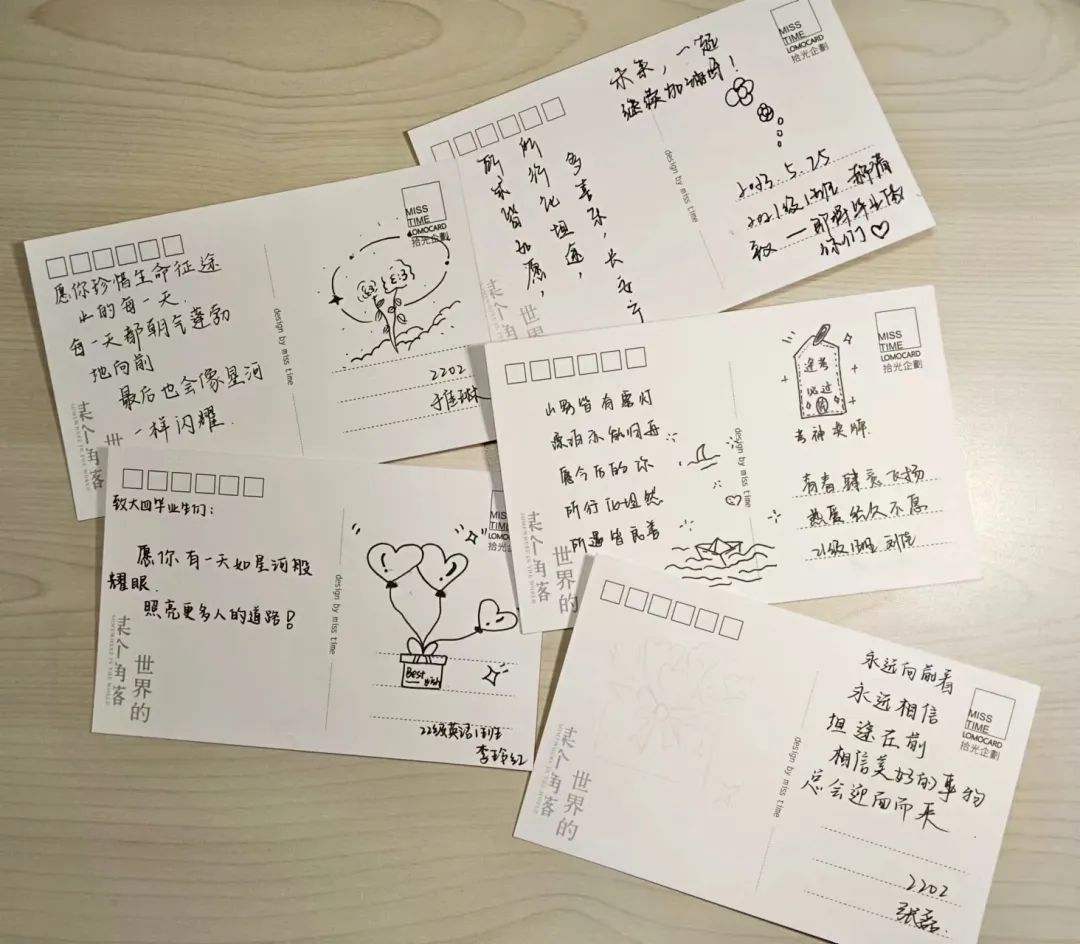 MISS
TIME
LOMOCARD
拾光企劃
未来，一起
继续加油呀！
多喜乐，长安宁
所行化坦途，
所求皆如愿，
design by miss time
2023.5.25
2021级1班
致——即将毕业的
你们♡
世界的
某个角落
MISS
TIME
LOMOCARD
拾光企劃
愿你珍惜生命征途
上的每一天.
每一天都朝气蓬勃
地向前
最后也会像星河
一样闪耀.
design by miss time
2202
于佳琳
世
某个角落
SOMEWHERE IN THE WORLD
MISS
TIME
LOMOCARD
拾光企劃
山野皆有雾灯
漂泊亦能归舟
愿今后的你
所行化坦然
所遇皆良善
design by miss time
逢考
必过
考神卖牌
青春肆意飞扬
热爱依久不愿
21级1班
世界的
某个角落
SOMEWHERE IN THE WORLD
致大四毕业生们：
愿你有一天如星河般
耀眼.
照亮更多人的道路！
design by miss time
Best
wish
22级英语1班
李玲红
世界的
某个角落
SOMEWHERE IN THE WORLD
MISS
TIME
LOMOCARD
拾光企劃
永远向前看
永远相信
坦途在前
相信美好的事物
总会迎面而来
design by miss time
2202
张磊.
世界的
某个角落
SOMEWHERE IN THE WORLD